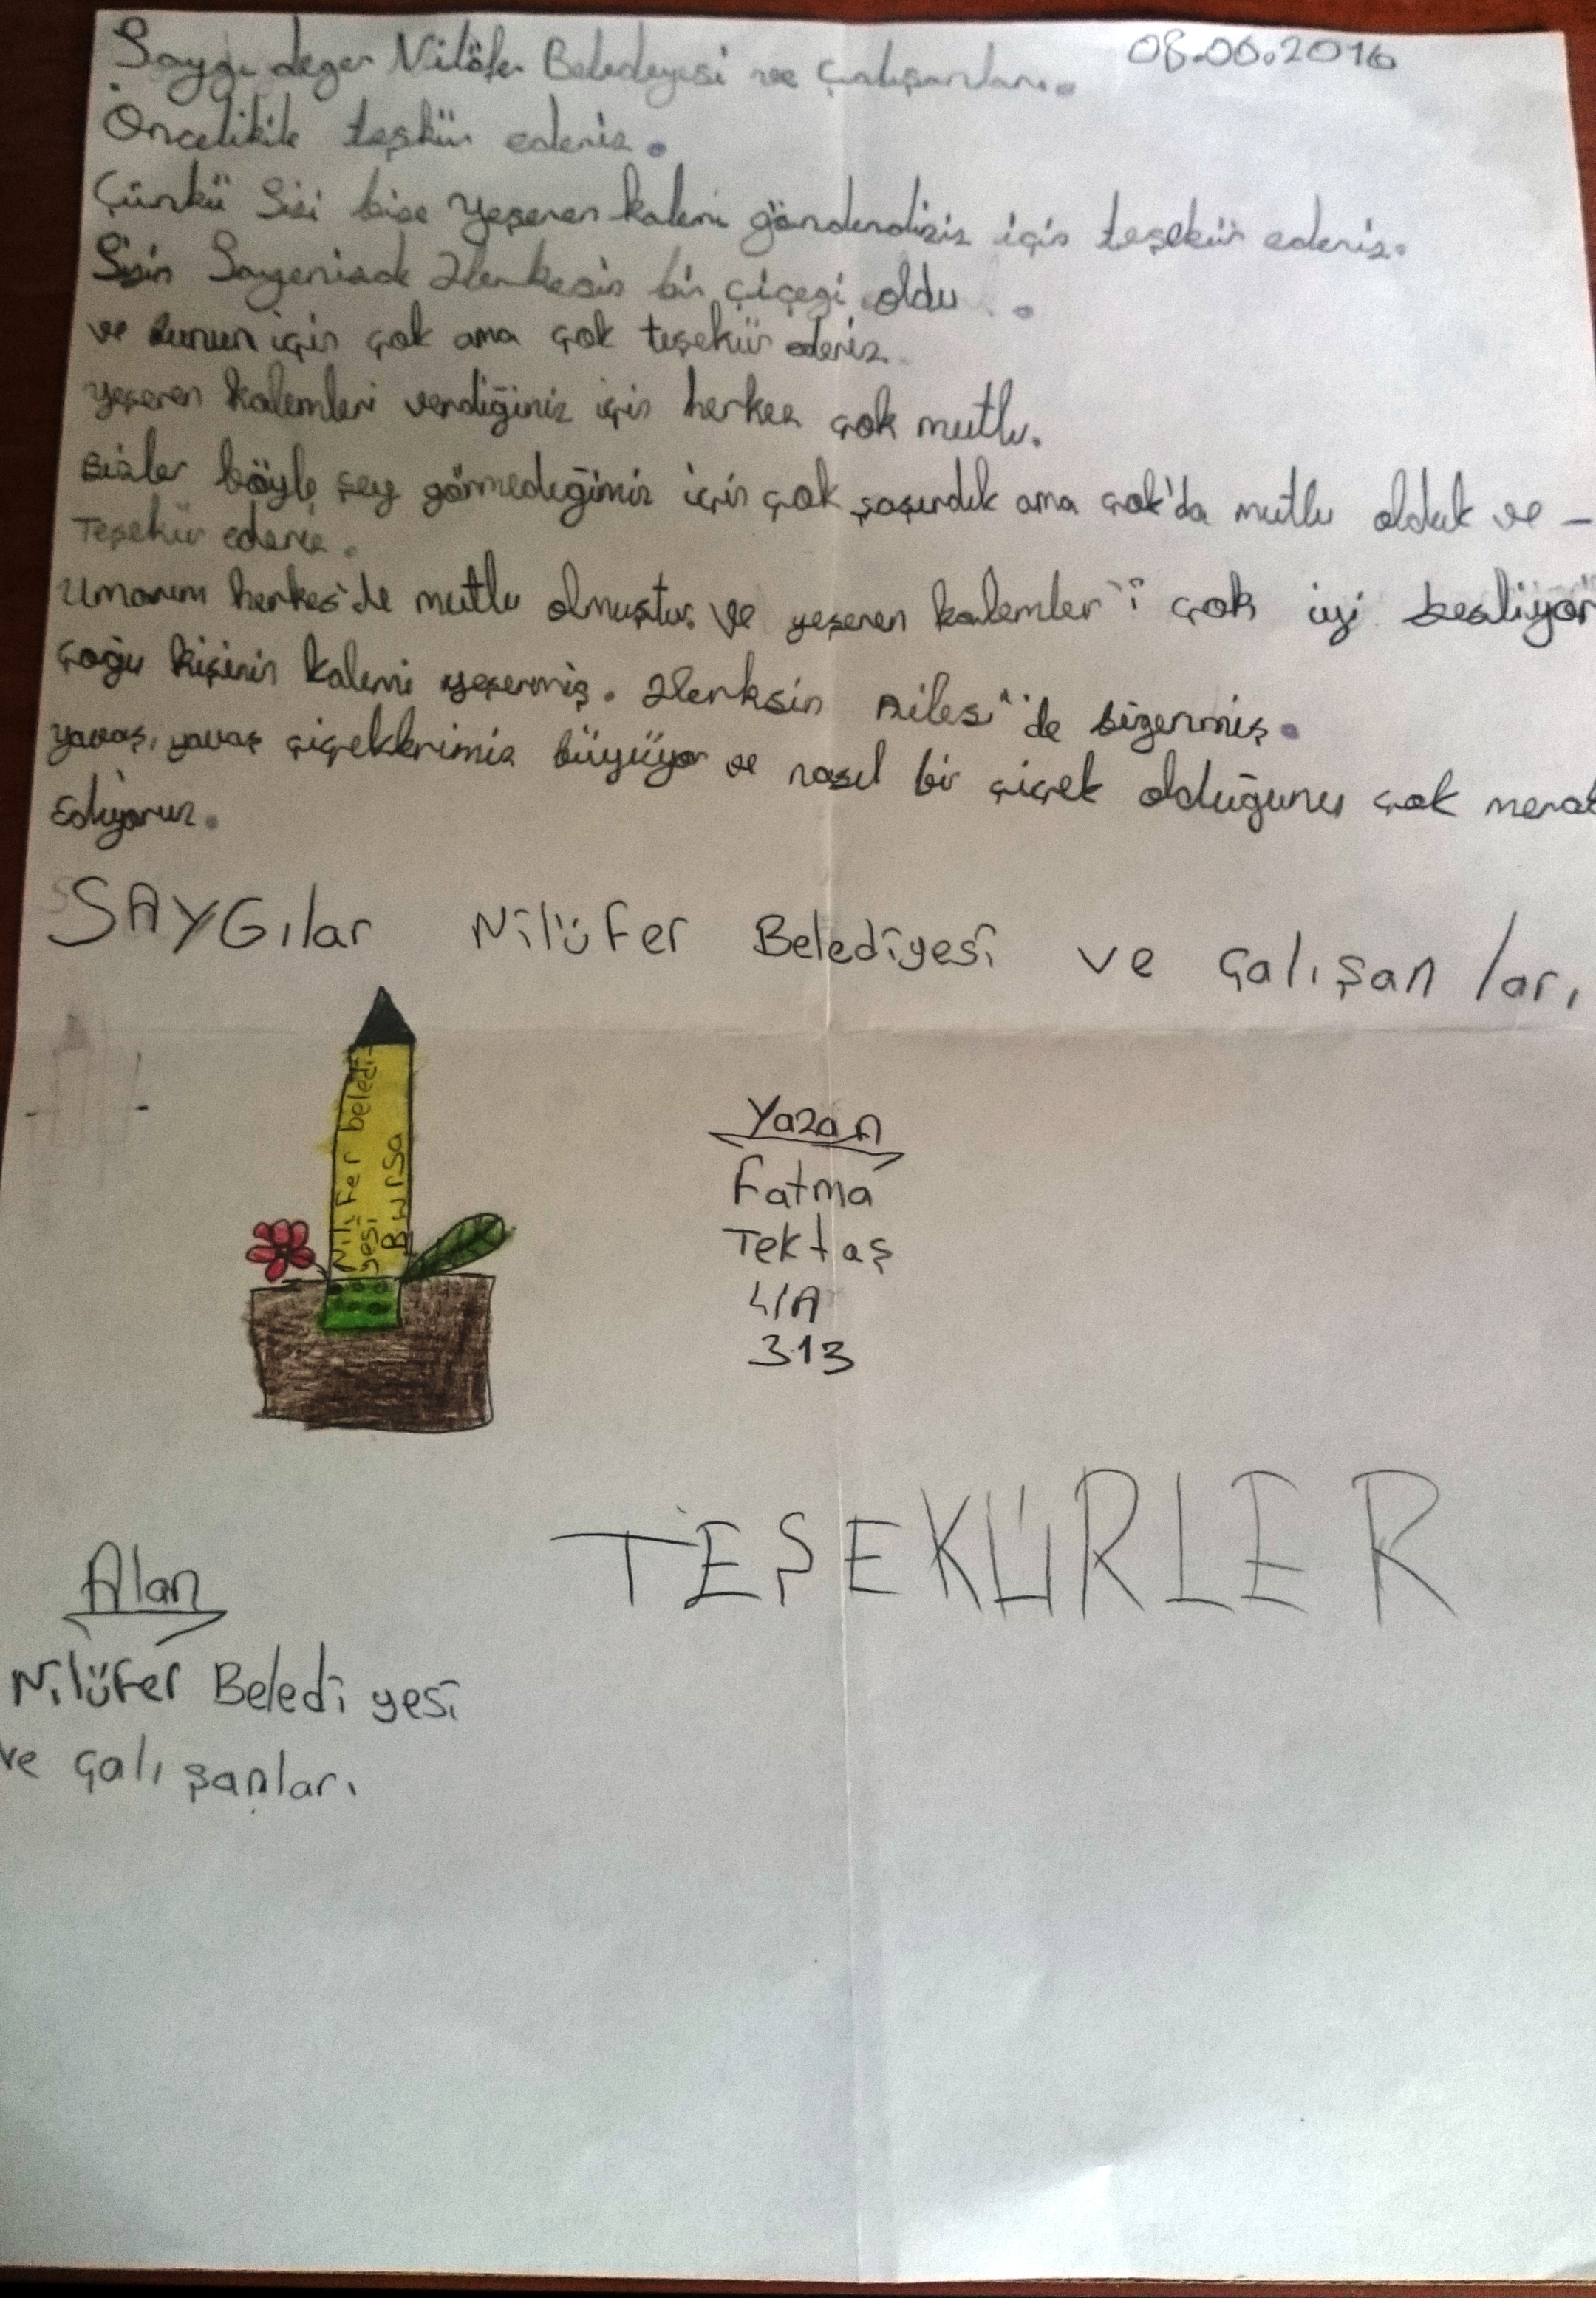 08.06.2016
Saygı deger Nilüfer Belediyesi ve Çalışanları.
Öncelikile teşkür ederiz.
Çünkü Sizi bize Yeşeren kalemi gönderdiziz için teşekür ederiz.
Sizin Sayenizde Herkesin bir çiçegi oldu.
ve bunun için çok ama çok teşekür ederiz
yeşeren kalemleri verdiğiniz için herkez çok mutlu.
Bizler böyle şey görmedeğimiz için çok şaşırdık ama çok'da mutlu olduk ve -
Teşekür ederiz.
Umarım herkes'de mutlu olmuştur. ve yeşeren kalemler''i çok iyi besliyor
çoğu kişinin kalemi yeşermiş. Herksin Ailesi''de beğenmiş.
yavaş, yavaş çiçeklerimiz büyüyor ve nasıl bir çiçek olduğunu çok merak
Ediyoruz.
SAYGılar Nilüfer Belediyesi ve çalışanları
Nilüfer beledi
yesi
Bursa
Yazan
Fatma
Tektaş
4/A
313
TEŞEKÜRLER
Alan
Nilüfer Belediyesi
ve çalışanları